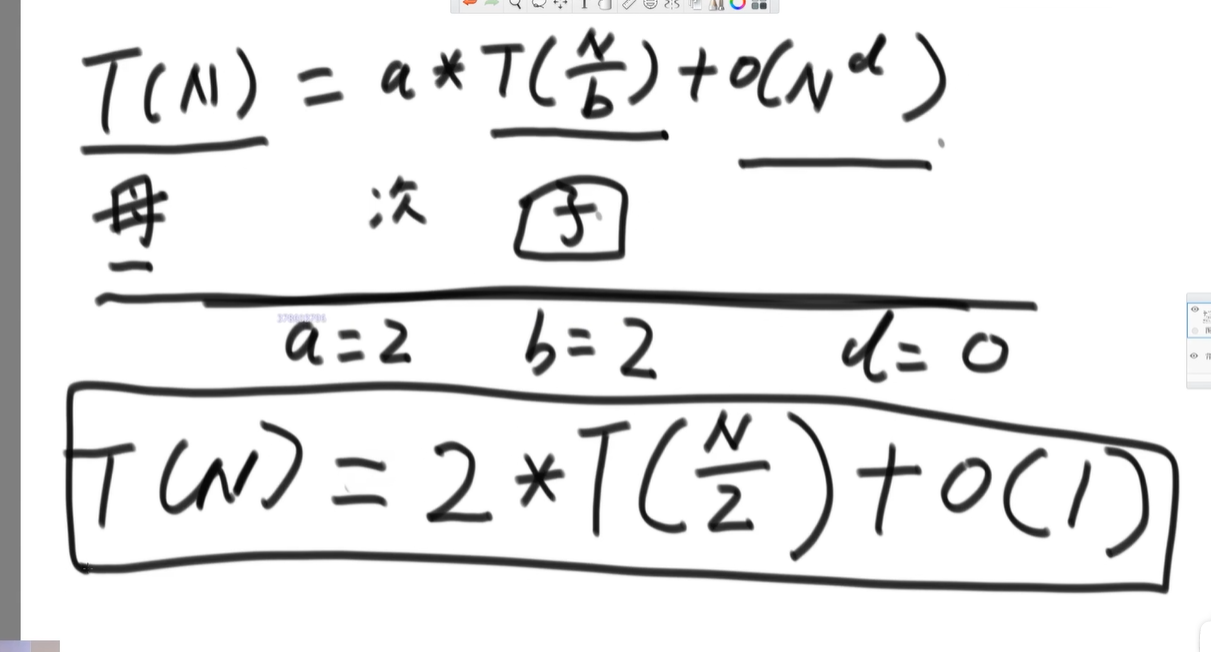 T(N) = a * T(N/b) + O(N^d)
母 次 子
a=2 b=2 d=0
T(N) = 2 * T(N/2) + O(1)